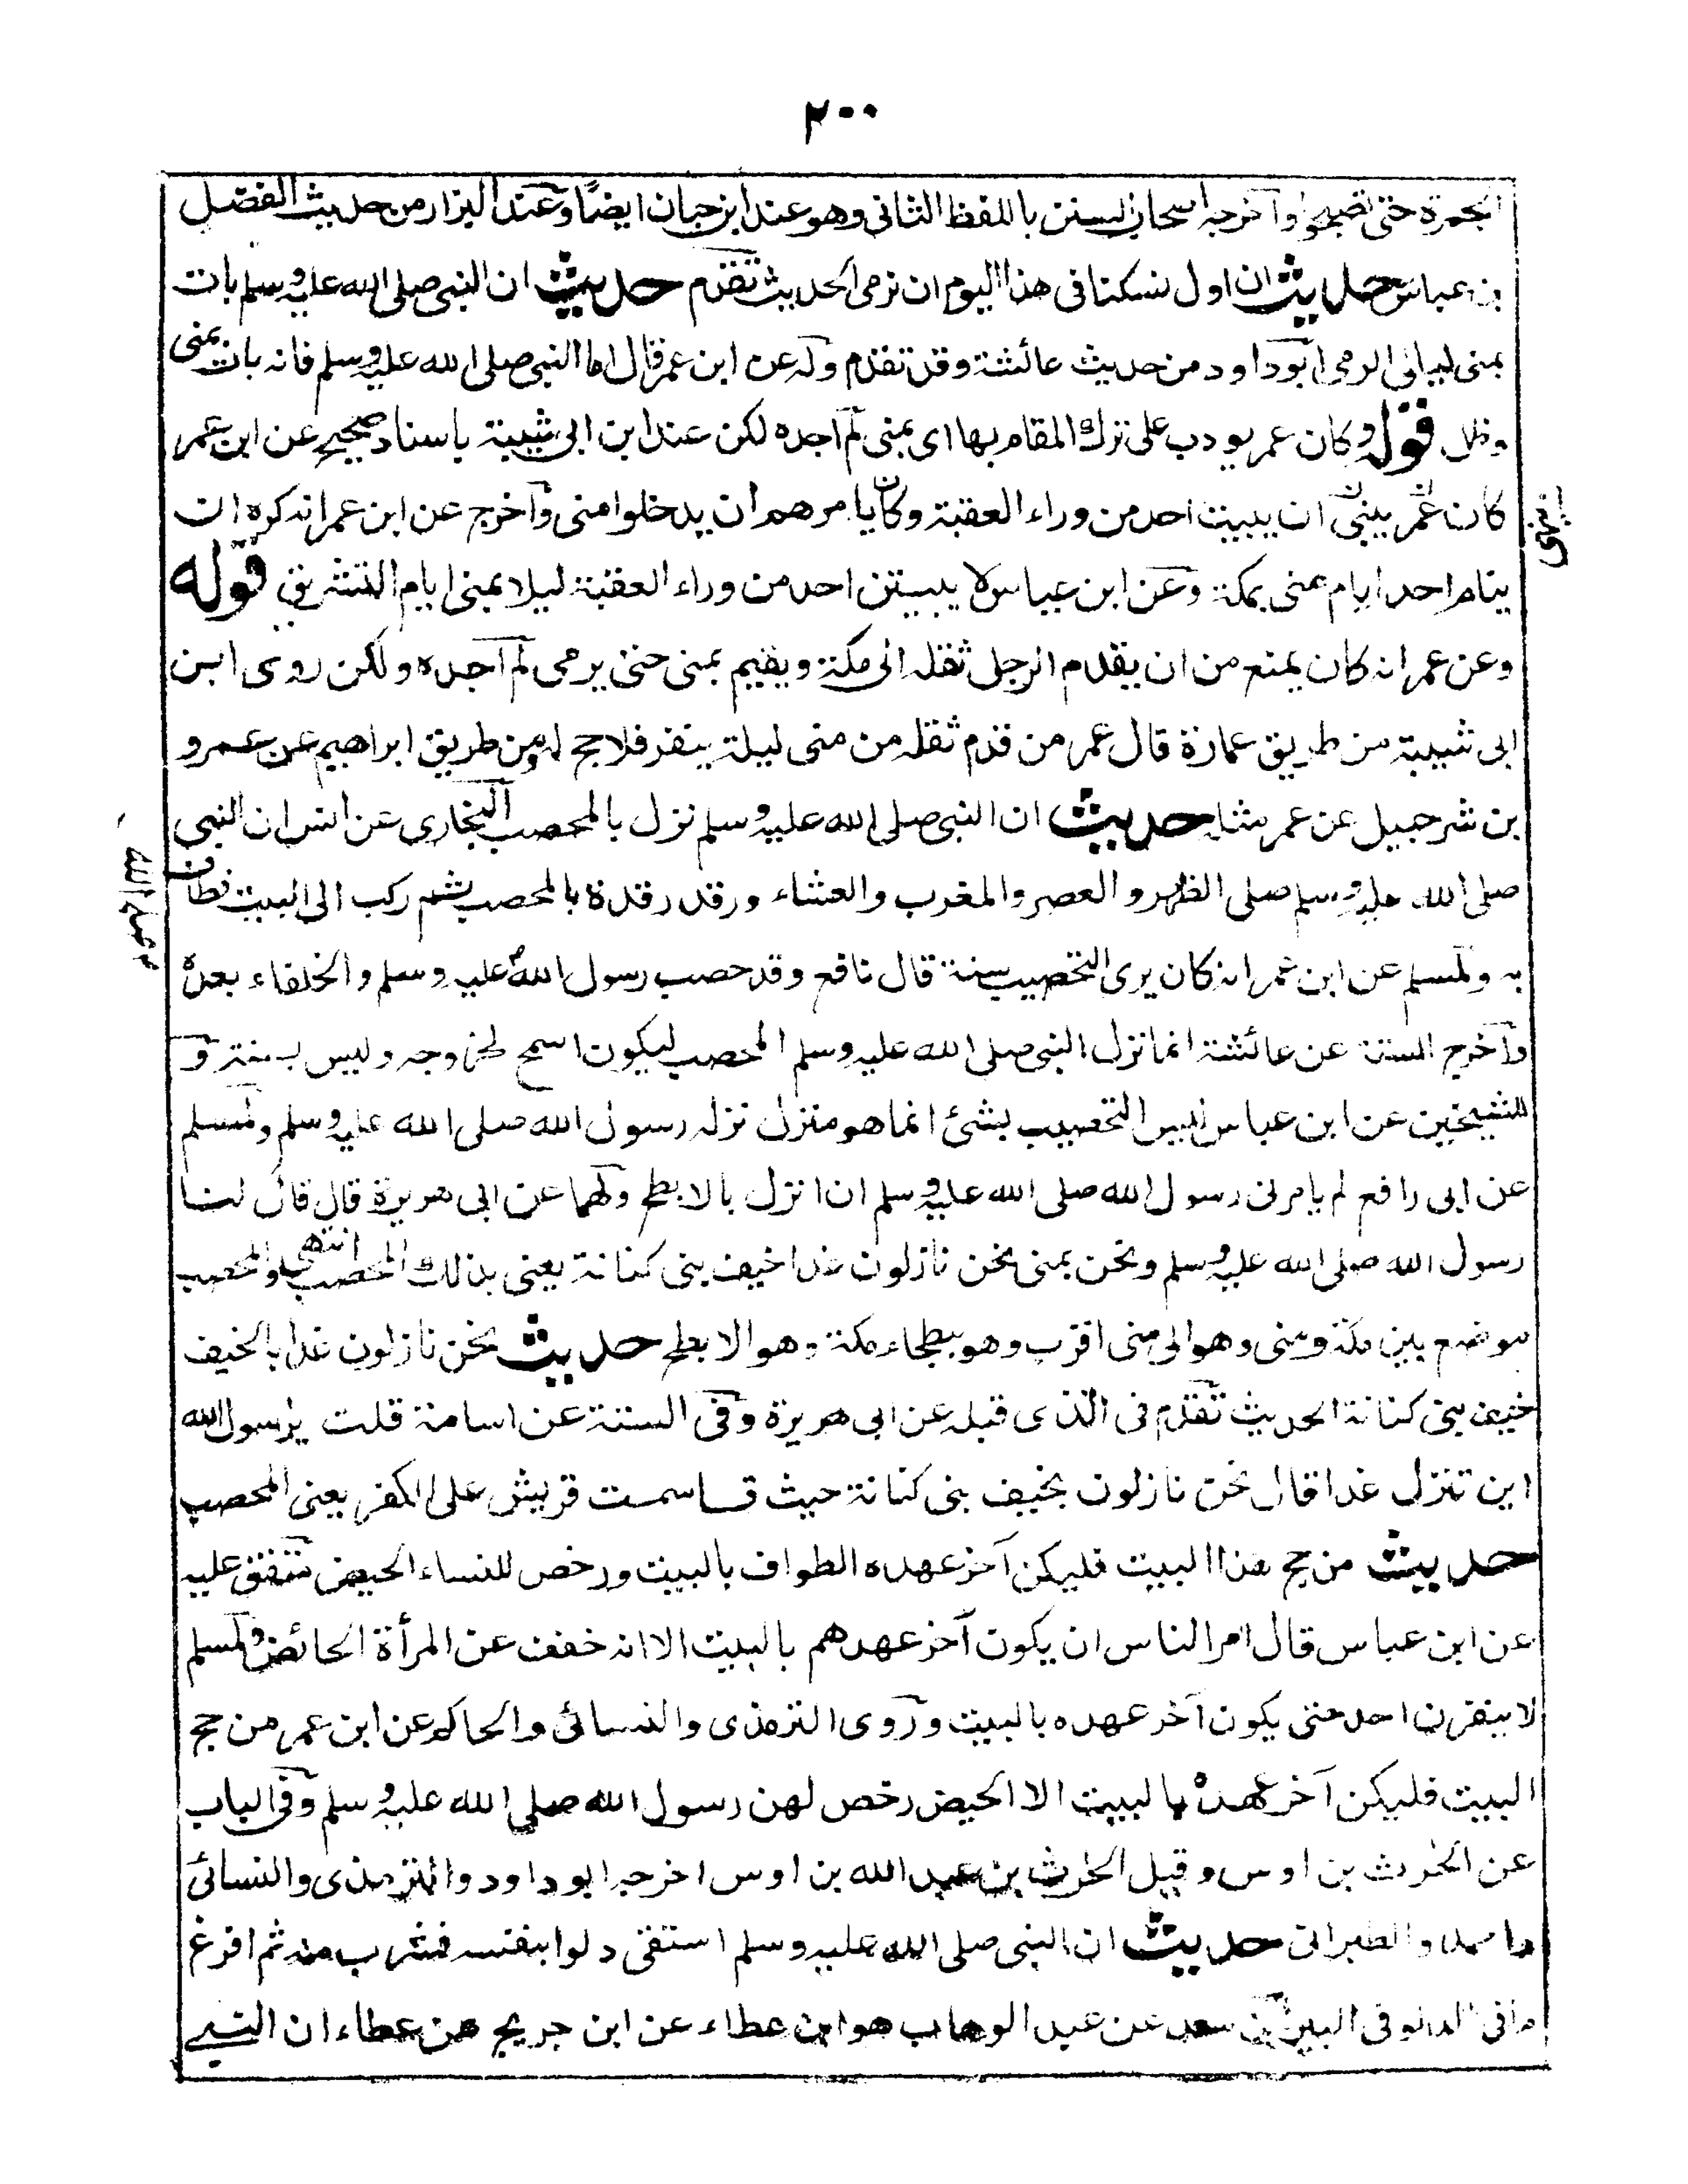 ٢٠٠
الجمرة حتى تصبحوا وآخرجه اصحاب السنن باللفظ الثاني وهو عند ابن حبان ايضًا وعند البزار من حديث الفضل
بن عباس حديث ان اول نسكنا في هذا اليوم ان نرمى الحديث تقدم حديث ان النبي صلى الله عليه وسلم بات
بمنى ليالي الرمى ابوداود من حديث عائشة وقد تقدم وله عن ابن عمر قال اما النبي صلى الله عليه وسلم فانه بات بمنى
وظل قوله وكان عمر يودب على ترك المقام بها اى بمنى لم اجده لكن عند ابن ابي شيبة باسناد صحيح عن ابن عمر
كان عمر ينهى ان يبيت احد من وراء العقبة وكان يامرهم ان يدخلوا منى وآخرج عن ابن عمر انه كره ان
ينام احد ايام منى بمكة وعن ابن عباس لا يبيتن احد من وراء العقبة ليلا بمنى ايام التشريق قوله
وعن عمر انه كان يمنع من ان يقدم الرجل ثقله الى مكة ويقيم بمنى حتى يرمى لم اجده ولكن روى ابن
ابى شيبة من طريق عمارة قال عمر من قدم ثقله من منى ليلة ينفر فلا حج له ومن طريق ابراهيم عن عمرو
بن شرحبيل عن عمر مثله حديث ان النبي صلى الله عليه وسلم نزل بالمحصب البخارى عن انس ان النبي
صلى الله عليه وسلم صلى الظهر والعصر والمغرب والعشاء ورقد رقدة بالمحصب ثم ركب الى البيت فطاف
به ولمسلم عن ابن عمر انه كان يرى التحصيب سنة قال نافع وقد حصب رسول الله عليه وسلم والخلفاء بعده
صلى الله
وآخرج الستة عن عائشة انما نزل النبي صلى الله عليه وسلم المحصب ليكون اسمح لخروجه وليس بسنة و
للشيخين عن ابن عباس ليس التحصيب بشئ انما هو منزل نزله رسول الله صلى الله عليه وسلم ولمسلم
عن ابى رافع لم يامرنى رسول الله صلى الله عليه وسلم ان انزل بالابطح ولهما عن ابى هريرة قال قال لنا
رسول الله صلى الله عليه وسلم ونحن بمنى نحن نازلون غدا خيف بنى كنانة يعنى بذلك المحصب انتهى والمحصب
موضع بين مكة ومنى وهو الى منى اقرب وهو بطحاء مكة وهو الابطح حديث نحن نازلون غدا بالخيف
خيف بنى كنانة الحديث تقدم فى الذى قبله عن ابى هريرة وفى الستة عن اسامة قلت يارسول الله
اين تنزل غدا قال نحن نازلون بخيف بنى كنانة حيث قاسمت قريش على الكفر يعنى المحصب
حديث من حج هذا البيت فليكن آخر عهده الطواف بالبيت ورخص للنساء الحيض متفق عليه
عن ابن عباس قال امر الناس ان يكون آخر عهدهم بالبيت الا انه خفف عن المرأة الحائض ولمسلم
لا ينفرن احد حتى يكون آخر عهده بالبيت وروى الترمذى والنسائى والحاكم عن ابن عمر من حج
البيت فليكن آخر عهده بالبيت الا الحيض رخص لهن رسول الله صلى الله عليه وسلم وفى الباب
عن الحرث بن اوس وقيل الحرث بن عبد الله بن اوس اخرجه ابو داود والترمذى والنسائى
واحمد والطبرانى حديث ان النبى صلى الله عليه وسلم استقى دلوا بنفسه فشرب منه ثم افرغ
ما فى الدلو فى البير ابن سعد عن عبد الوهاب هو ابن عطاء عن ابن جريج عن عطاء ان النبى